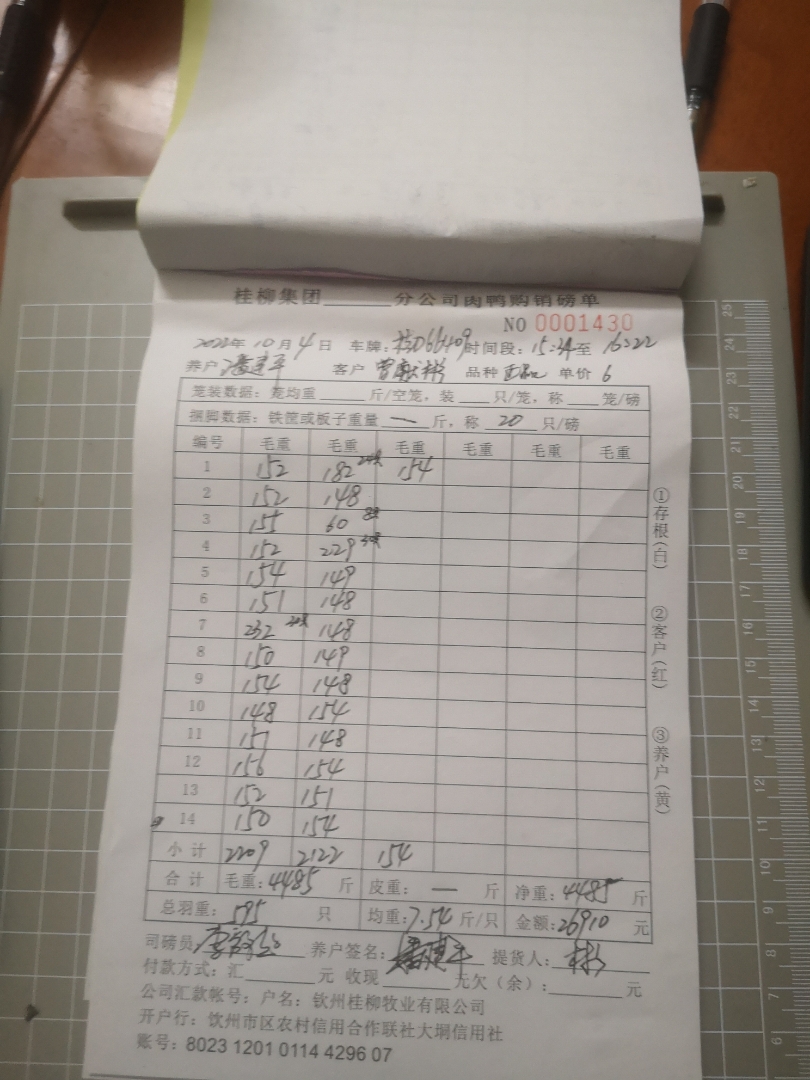 桂柳集团______分公司肉鸭购销磅单
NO 0001430
2022年10月4日 车牌: 时间段:15:24至16:22
养户 潘建平 客户 品种 单价 6
笼装数据:笼均重______斤/空笼,装____只/笼,称____笼/磅
捆脚数据:铁筐或板子重量 — 斤,称 20 只/磅
编号 毛重 毛重 毛重 毛重 毛重 毛重
1 152 182 154
2 152 148
3 155 60
4 152 229
5 154 149
6 151 148
7 232 148
8 150 149
9 154 148
10 148 154
11 151 148
12 156 154
13 152 151
14 150 154
小计 2209 2122 154
合计 毛重:4485 斤 皮重: — 斤 净重:4485 斤
总羽重:595 只 均重:7.54 斤/只 金额:26910 元
司磅员: 养户签名:潘建平 提货人:
付款方式:汇________元 收现________元欠(余):________元
公司汇款帐号:户名:钦州桂柳牧业有限公司
开户行:钦州市区农村信用合作联社大垌信用社
账号:8023 1201 0114 4296 07
①存根(白) ②客户(红) ③养户(黄)
25
24
23
22
21
20
19
18
17
16
15
14
13
12
11
10
9
8
7
6